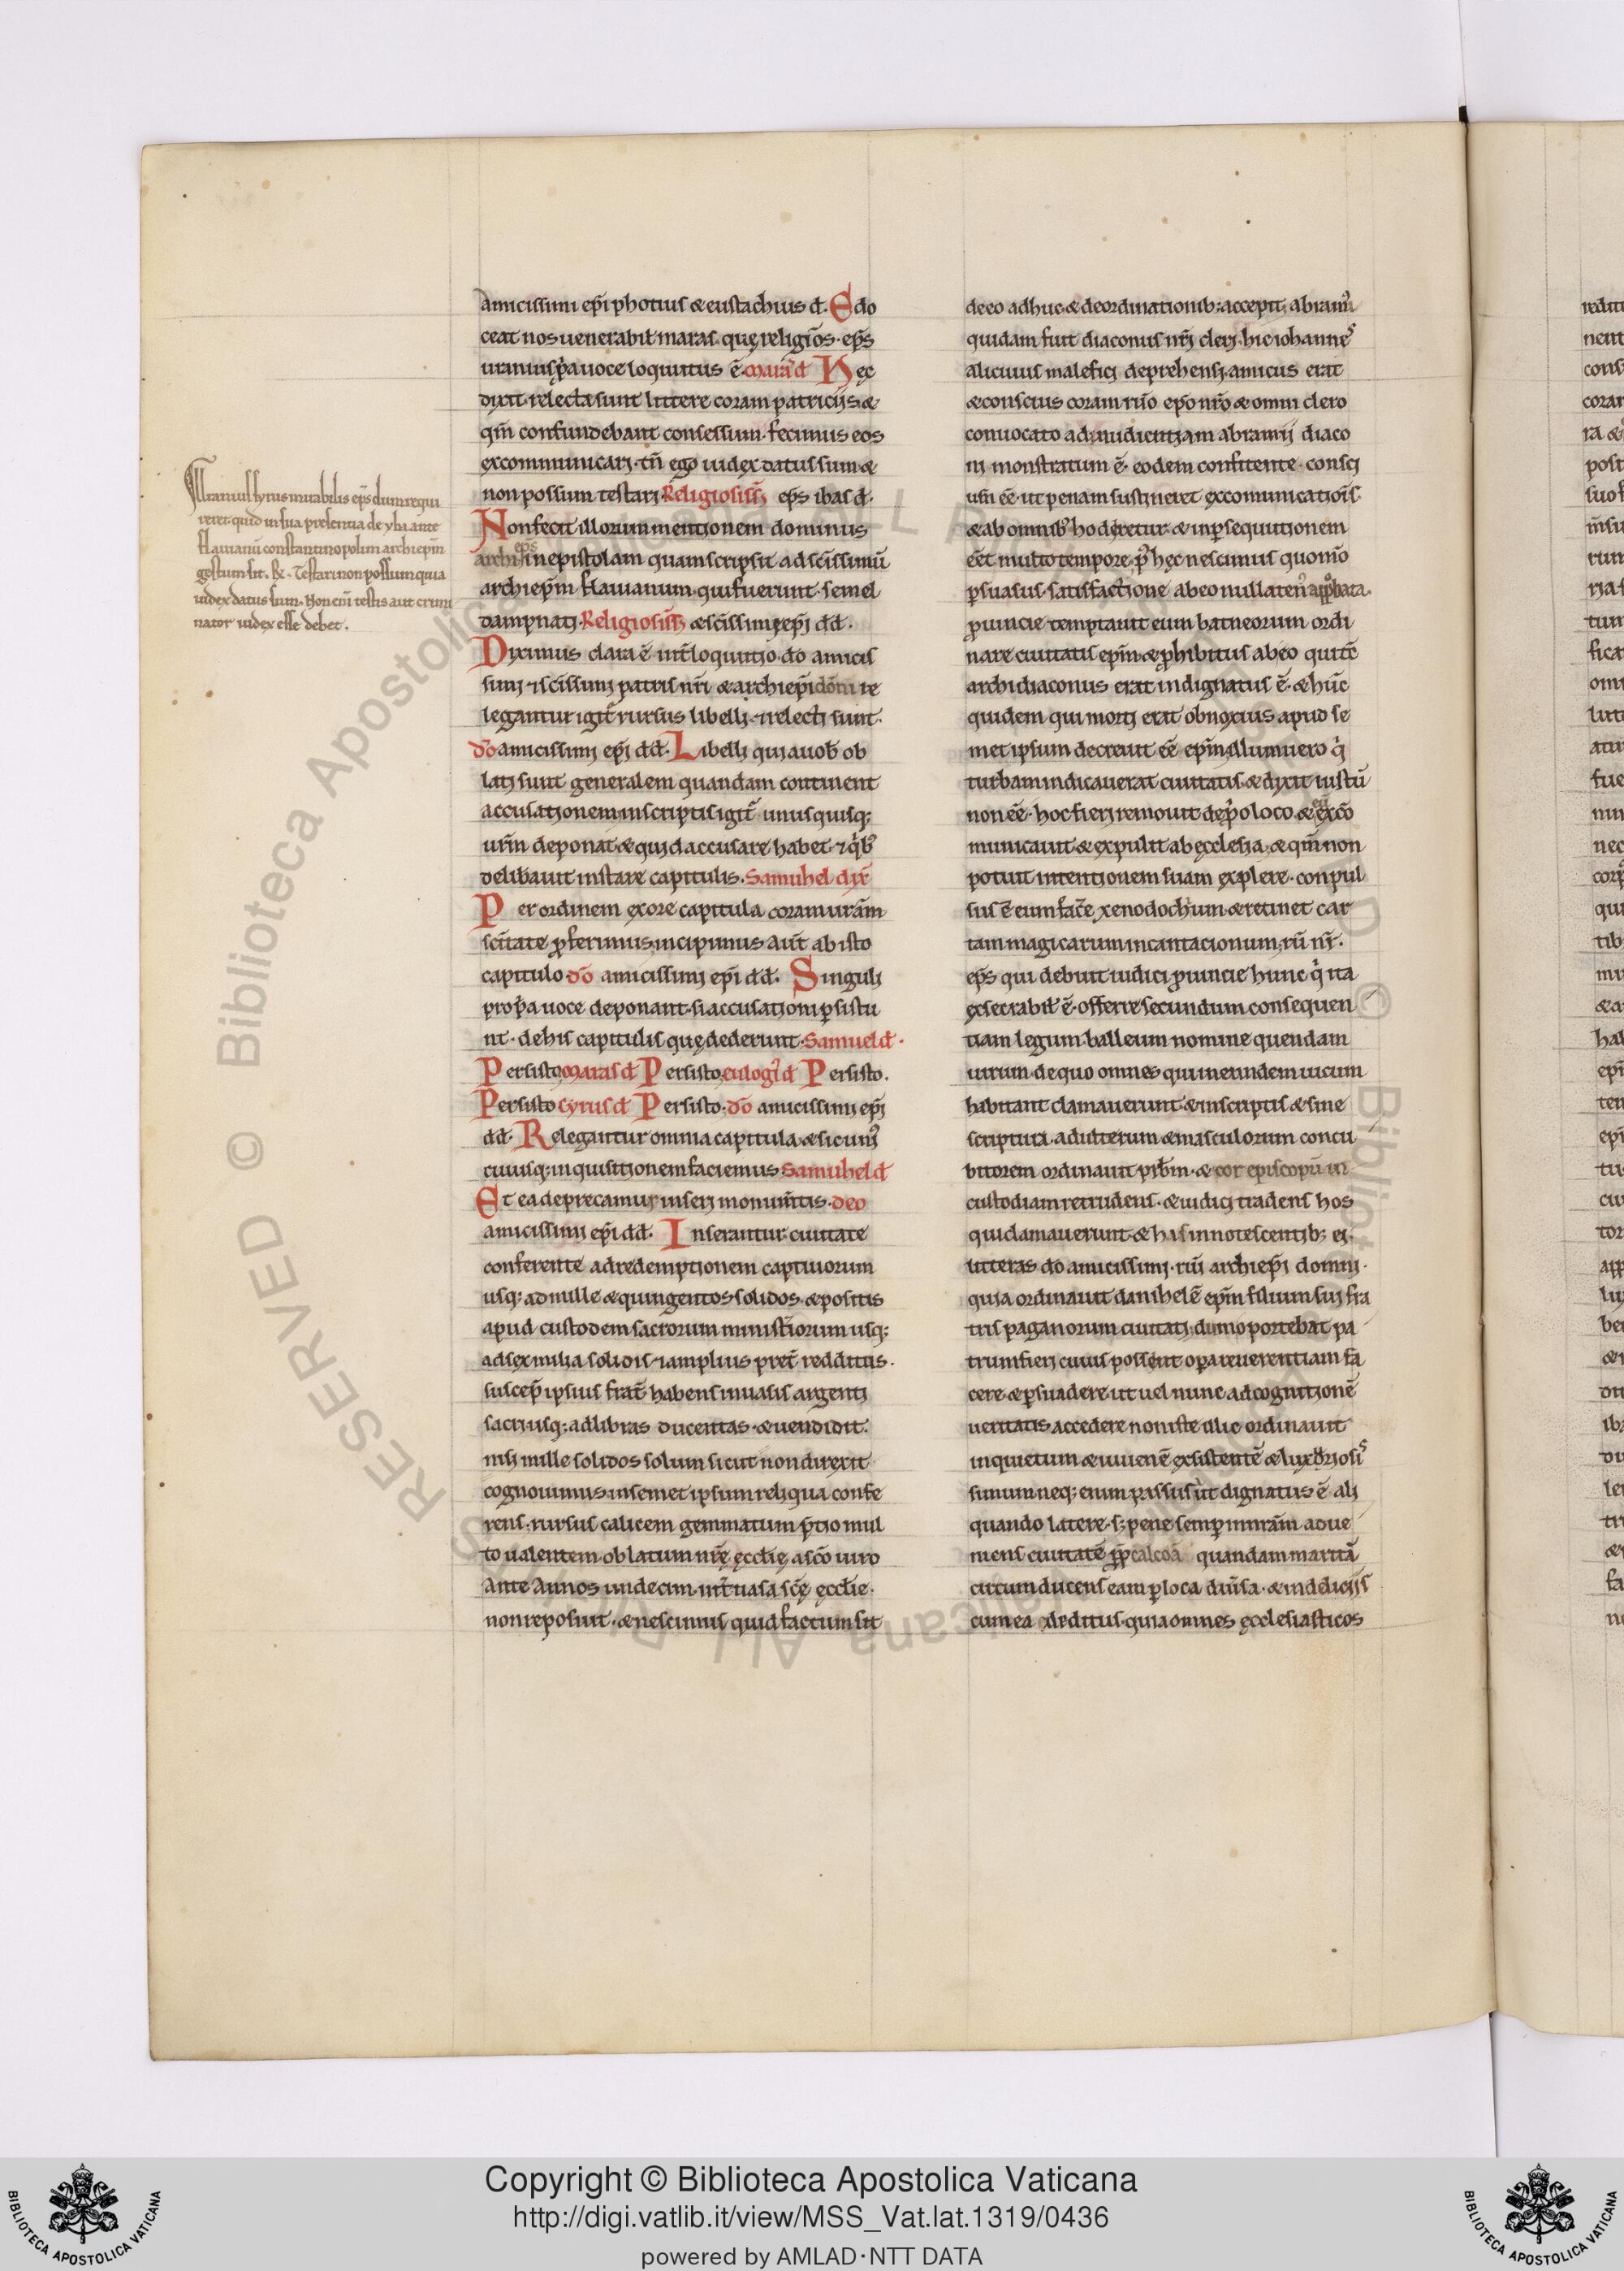 Uranius hyrus mirabilis ep̄s dum requi
reret quid in sua presentia de yba ante
flauianū constantinopolim archiep̄m
gestum sit. R̃. Testari non possum quia
iudex datus sum. Non eni testis aut crimi
nator iudex esse debet.
amicissimi ep̄i photius & eustachius đ. Edo
ceat nos uenerabil maras que religios. ep̄s
uranius p̄pa uoce loquutus ē. maras đ Hęc
dixit relecta sunt littere coram patriciis &
qm̄ confundebant consessum. fecimus eos
excommunicari. tn̄ ego iudex datus sum &
non possum testari. Religiosiss ep̄s ibas đ.
Non fecit illorum mentionem dominus
archi ep̄s in epistolam quam scripsit ad sc̄issimū
archiep̄m flauianum. qui fuerunt semel
dampnati. Religiosiss & sc̄issimi ep̄i đđ.
Diximus clara ē int̄loquutio. do amicis
simi & sc̄issimi patris nr̄i & archiep̄i dōni re
legantur igit̄ rursus libelli & relecti sunt.
dō amicissimi ep̄i đđ. Libelli qui a uob ob
lati sunt generalem quandam continent
accusationem inscriptis igit̄ unusquisq;
ur̄m deponat & quid accusare habet & qb;
delibauit instare capitulis. Samuhel dix̄
Per ordinem exore capitula coram ur̄am
sc̄itate p̄ferimus. incipimus aut̄ ab isto
capitulo dō amicissimi ep̄i đđ. Singuli
propa uoce deponant. si accusationi psistu
nt. de his capitulis quę dederunt. Samuel đ.
Persisto maras đ Persisto. eulogi đ Persisto.
Persisto cyrus đ Persisto. dō amicissimi ep̄i
đđ. Relegantur omnia capitula & sic uni
cuiusq; inquisitionem faciemus. Samuhel đ
Et ea deprecamur inseri monumtis. deo
amicissimi ep̄i đđ. Inserantur ciuitate
conferente ad redemptionem captiuorum
usq; ad mille & quingentos solidos. & positis
apud custodem sacrorum ministiorum usq;
ad sex milia solidis & amplius pret̄ redditus.
suscep̄ ipsius frat̄ habens in uasis argenti
sacri usq; ad libras ducentas & uendidit.
nisi mille solidos solum sicut non direxit
cognouimus in semet ipsum reliqua confe
rens. rursus calicem gemmatum p̄tio mul
to ualentem oblatum nr̄ę ęcclię a sc̄o uiro
Ante Annos undecim. int̄ uasa sc̄ę ęcclie
non reposuit. & nescimus quid factum sit
de eo adhuc & de ordinationib; accepit, abrami
quidam fuit diaconus nr̄i cleri. hic iohannes
alicuius malefici deprehensi. amicus erat
& conscius coram rūo epō nr̄o & omni clero
conuocato ad audientiam abramii diaco
ni monstratum ē. eodem confitente. consci
um eē. ut penam sustineret excomunicationis
& ab omnib; hoderetur & in psequutionem
eēt multo tempore. p̄ hęc nescimus quomō
psuasus. satisfactione ab eo nullaten approbata.
puincie temptauit eum batneorum ordi
nare ciuitatis ep̄m & phibitus ab eo quitē
archidiaconus erat indignatus ē. & hūc
quidem qui morti erat obnoxius apud se
met ipsum decreuit eē ep̄m. illum uero q̇
turbam indicauerat ciuitatis. & dixit iustū
non eē. hoc fieri remouit de p̄o loco. & eū exco
municauit & expulit ab ęcclesia. & qm̄ non
potuit intentionem suam explere. conpul
sus ē eum facē xenodochium & retinet car
tam magicarum incantacionum. rū nr̄.
ep̄s qui debuit iudici puincie hunc q̇ ita
execrabil ē. offerre secundum consequen
tiam legum. balleum nomine quendam
uirum de quo omnes qui in eundem uicum
habitant clamauerunt & inscriptis & sine
scriptura. adulterum & masculorum concu
bitorem ordinauit prbm. & cor episcopū in
custodiam retrudens. & iudici tradens hos
qui clamauerunt & his innotescentib; ei.
litteras do amicissimi. rūi archiep̄i domni.
quia ordinauit danihelē ep̄m filium sui fra
tris paganorum ciuitati. dum oportebat pa
trum fieri cuius possent opa reuerentiam fa
cere & psuadere ut uel nunc ad cognitionē
ueritatis accedere non iste illic ordinauit
inquietum & iuuenē exsistentē & luxoriosi
simum neq; enim passus ut dignatus ē ali
quando latere. s; pene semp in nr̄am adue
niens ciuitatē pp calcoā quandam maritā
circumducens eam p loca diuisa. & in deliciis
cum ea deditus. quia omnes ęcclesiasticos
Copyright © Biblioteca Apostolica Vaticana
http://digi.vatlib.it/view/MSS_Vat.lat.1319/0436
powered by AMLAD·NTT DATA